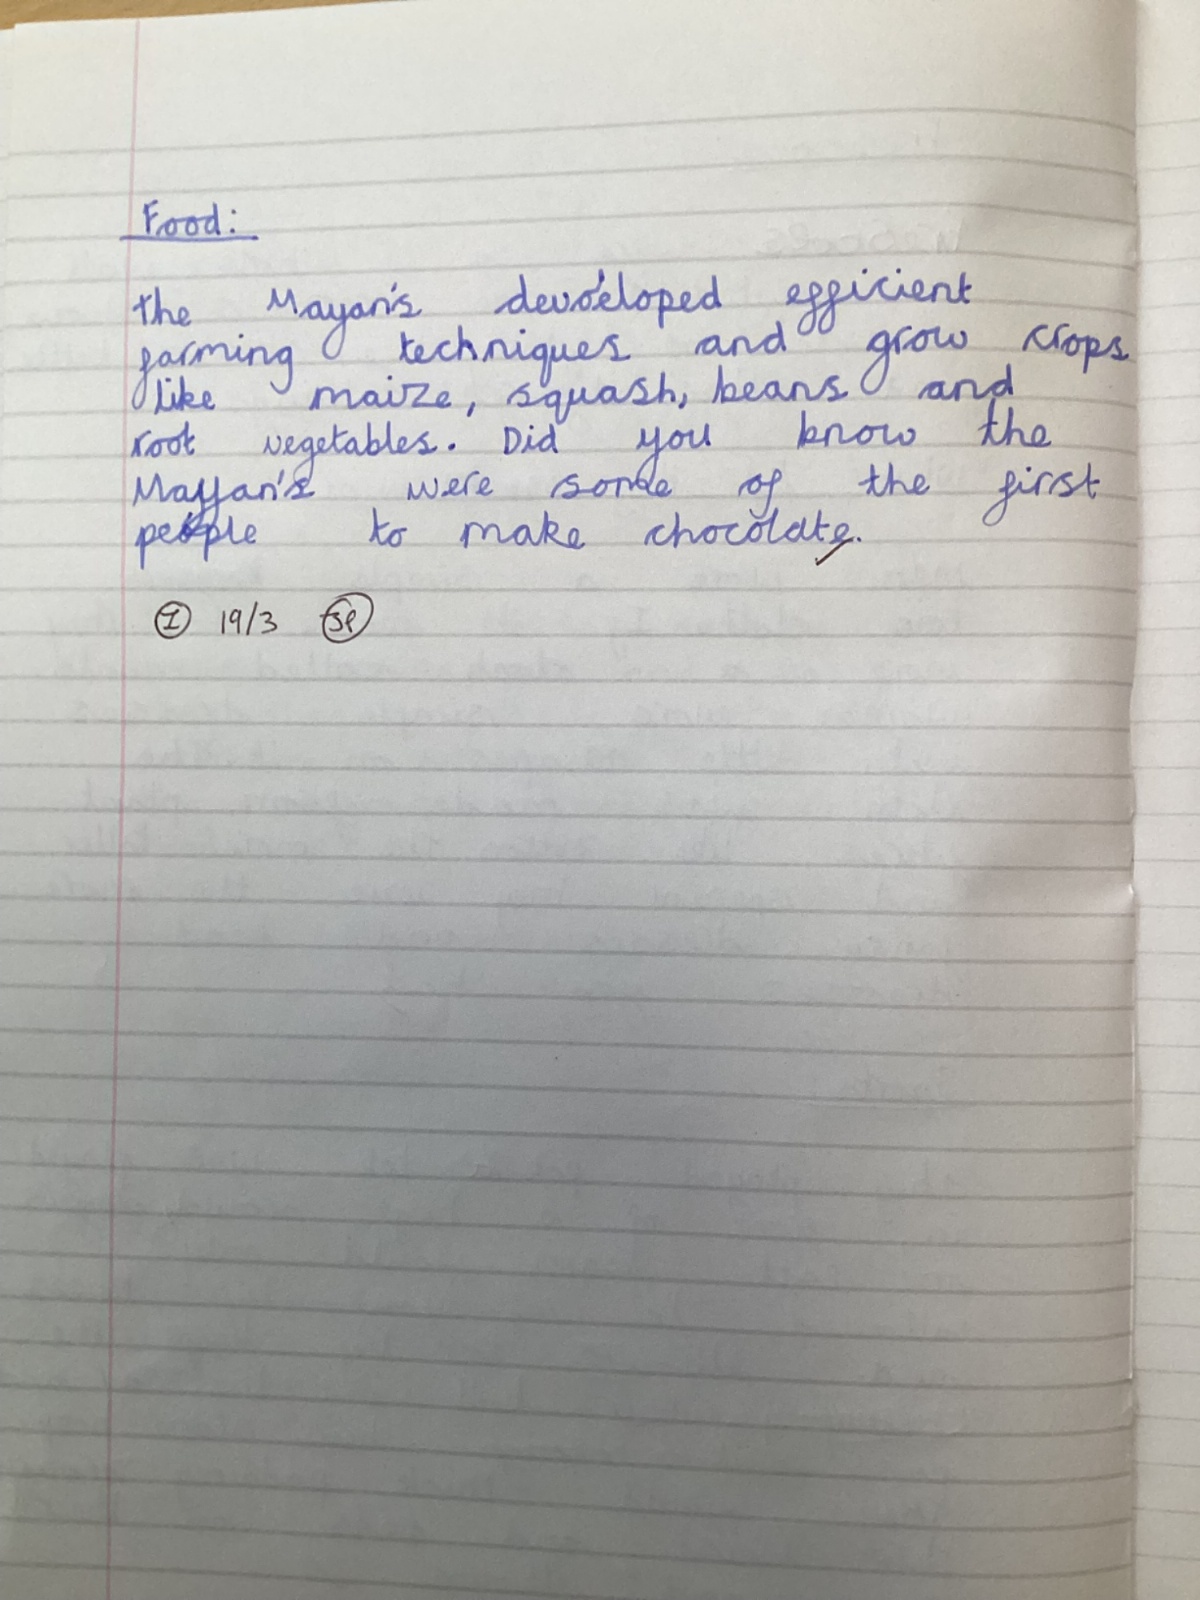 Food:
the Mayan's developed efficient
farming techniques and grow crops
like maize, squash, beans and
root vegetables. Did you know the
Mayan's were some of the first
people to make chocolate.
I 19/3 SP